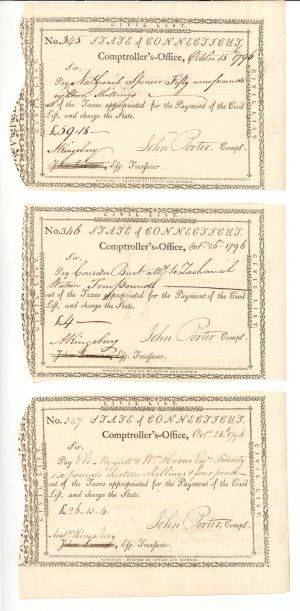 CIVIL LIST.
No. 345 STATE of CONNECTICUT.
Comptroller's-Office, Octobr 15th 1796
Sir,
Pay Nathaniel Spencer Fifty nine pounds
eighteen Shillings
out of the Taxes appropriated for the Payment of the Civil
List, and charge the State.
£59.18
A Kingsbury John Porter, Compt.
Esq. Treasurer.
CIVIL LIST.
CIVIL LIST.
No. 346 STATE of CONNECTICUT.
Comptroller's-Office, Octr 26th 1796
Sir,
Pay
Four Pounds
out of the Taxes appropriated for the Payment of the Civil
List, and charge the State.
£4
A Kingsbury John Porter Compt.
Esq. Treasurer.
CIVIL LIST.
No. 347 STATE of CONNECTICUT.
Comptroller's-Office, Octr 28th 1796
Sir,
Pay Eli & Wm Esqrs Twenty
six pounds Thirteen Shillings & four pence
out of the Taxes appropriated for the Payment of the Civil
List, and charge the State.
£26.13.4
Andw Kingsbury John Porter, Compt.
Esq. Treasurer.
CIVIL LIST.